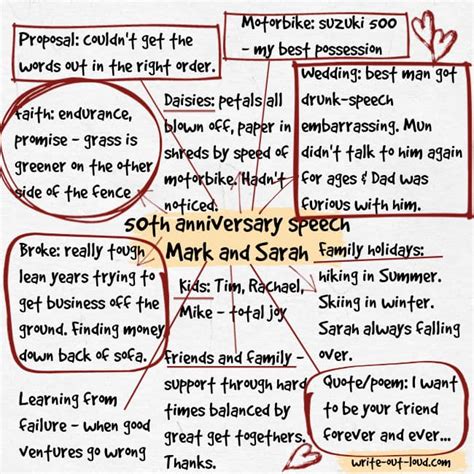 Proposal: couldn't get the
words out in the right order.
Motorbike: suzuki 500
- my best possession
Faith: endurance,
promise - grass is
greener on the other
side of the fence
Daisies: petals all
blown off, paper in
shreds by speed of
motorbike. Hadn't
noticed.
Wedding: best man got
drunk-speech
embarrassing. Mun
didn't talk to him again
for ages & Dad was
furious with him.
50th anniversary speech
Mark and Sarah
Broke: really tough
lean years trying to
get business off the
ground. Finding money
down back of sofa.
Kids: Tim, Rachael,
Mike - total joy
Family holidays:
hiking in Summer.
Skiing in winter.
Sarah always falling
over.
Learning from
failure - when good
ventures go wrong
Friends and family -
support through hard
times balanced by
great get togethers.
Thanks.
Quote/poem: I want
to be your friend
forever and ever...
write-out-loud.com